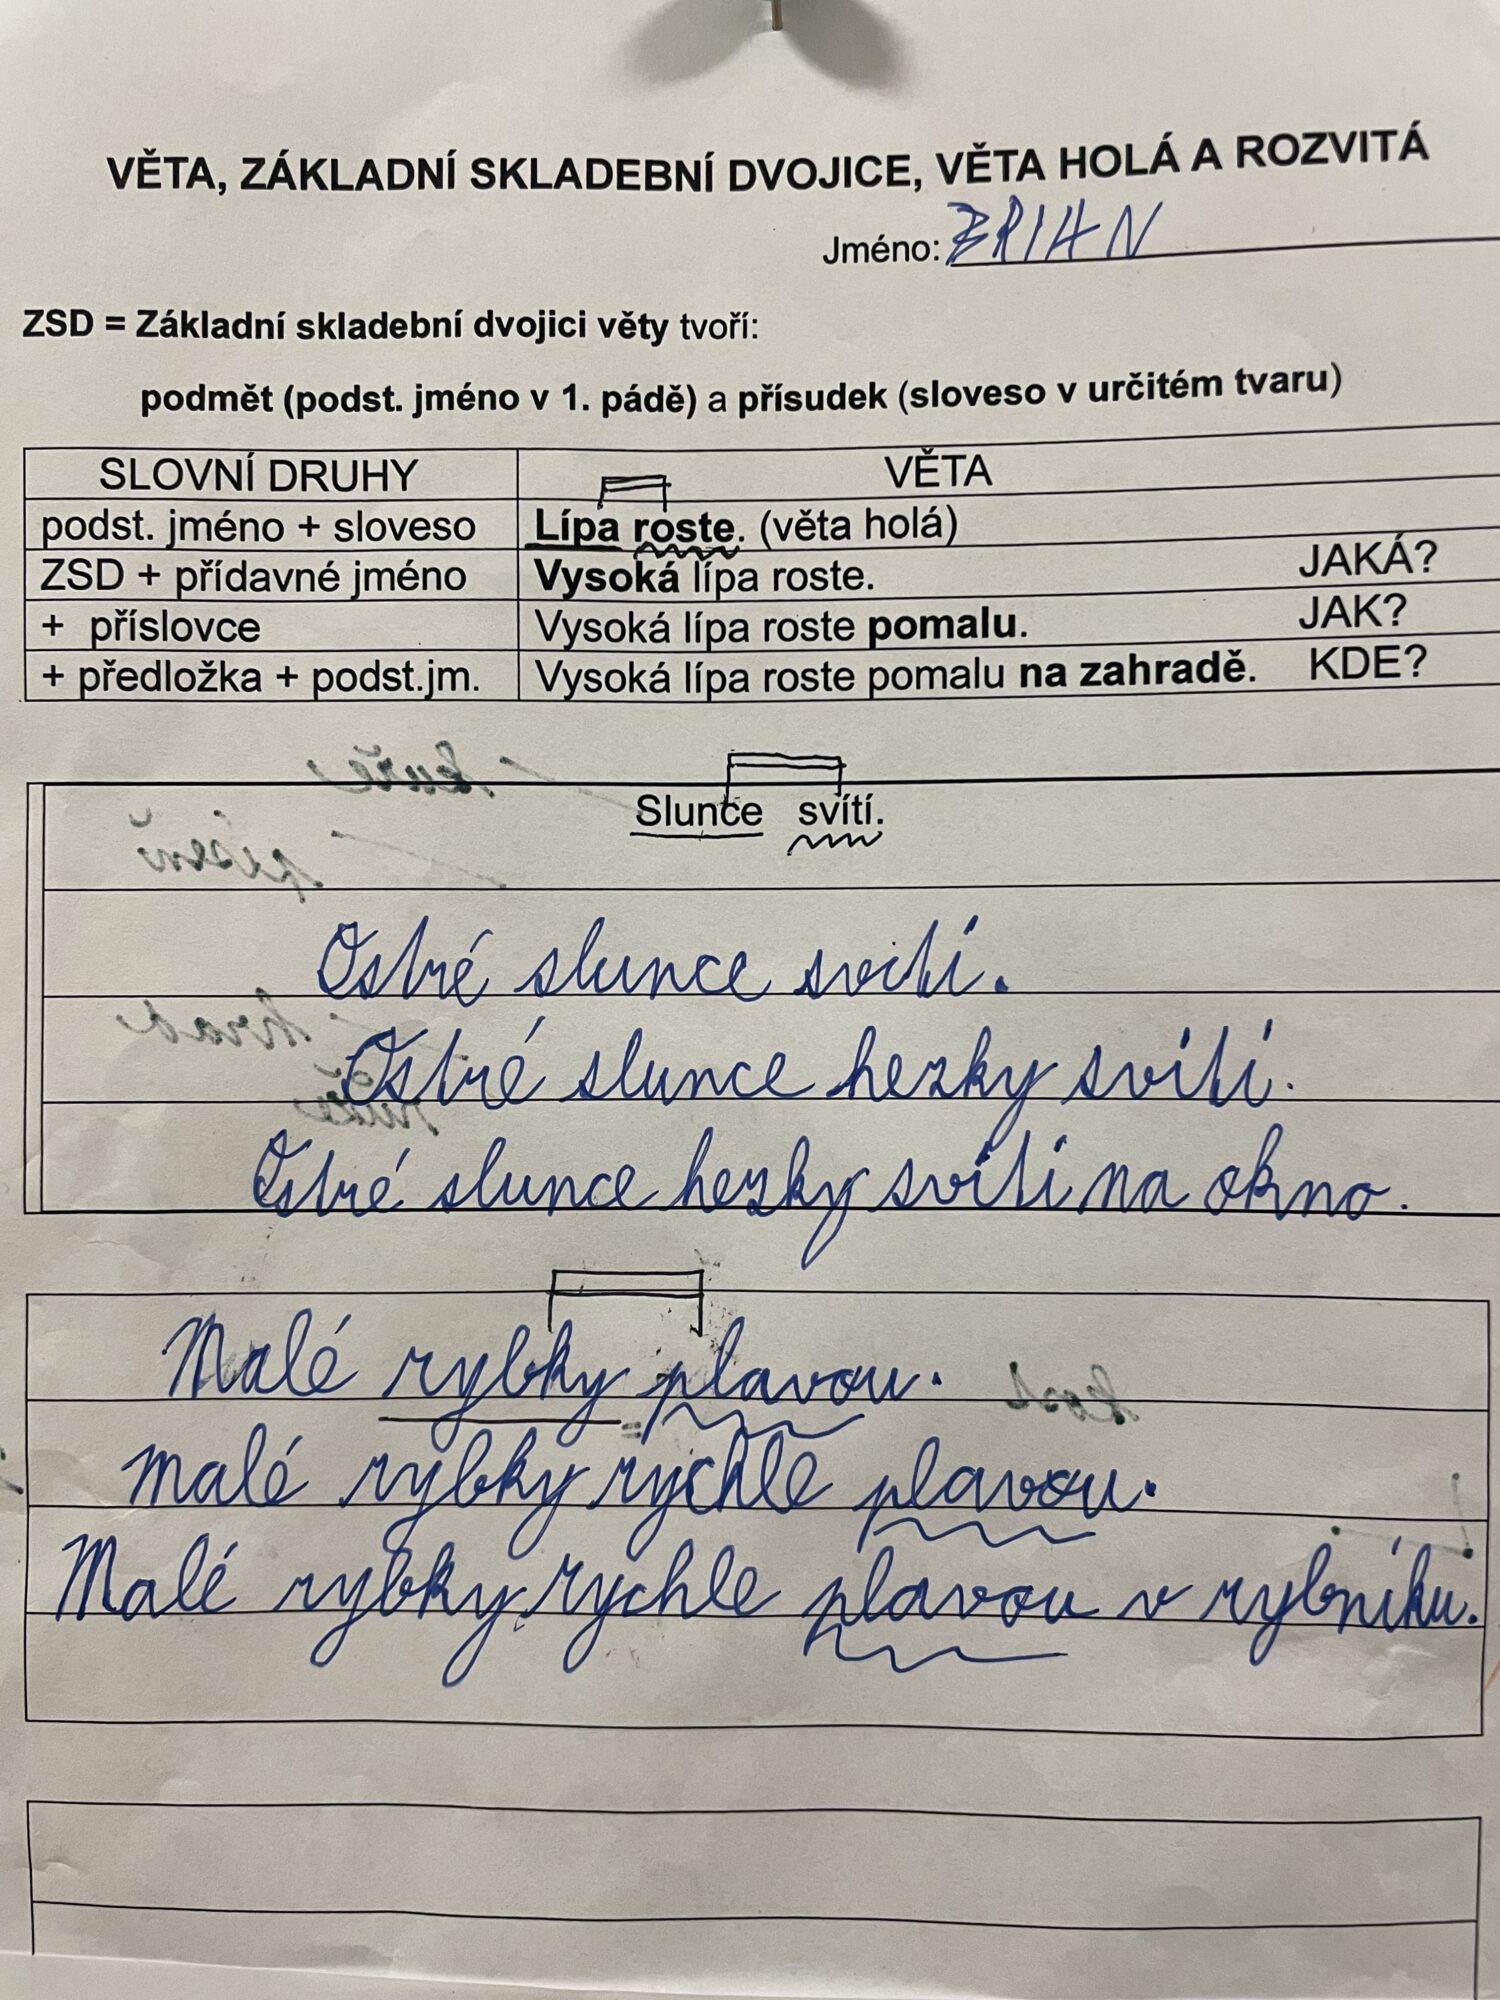 VĚTA, ZÁKLADNÍ SKLADEBNÍ DVOJICE, VĚTA HOLÁ A ROZVITÁ
Jméno: BRIAN
ZSD = Základní skladební dvojici věty tvoří:
podmět (podst. jméno v 1. pádě) a přísudek (sloveso v určitém tvaru)
SLOVNÍ DRUHY VĚTA
podst. jméno + sloveso Lípa roste. (věta holá)
ZSD + přídavné jméno Vysoká lípa roste. JAKÁ?
+ příslovce Vysoká lípa roste pomalu. JAK?
+ předložka + podst.jm. Vysoká lípa roste pomalu na zahradě. KDE?
kuře
píseň
Slunce svítí.
Ostré slunce svítí.
hrad
Ostré slunce hezky svítí.
Ostré slunce hezky svítí na okno.
Malé rybky plavou.
kost
malé rybky rychle plavou.
Malé rybky rychle plavou v rybníku.